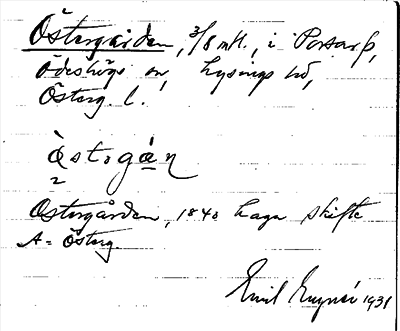 Östergården, 3/8 mtl., i Porsarp,
Ödeshögs sn, Lysings hd,
Österg. l.
östərgá̱n
2
Östergården, 1840 laga skifte
A = Österg.
Emil 1931